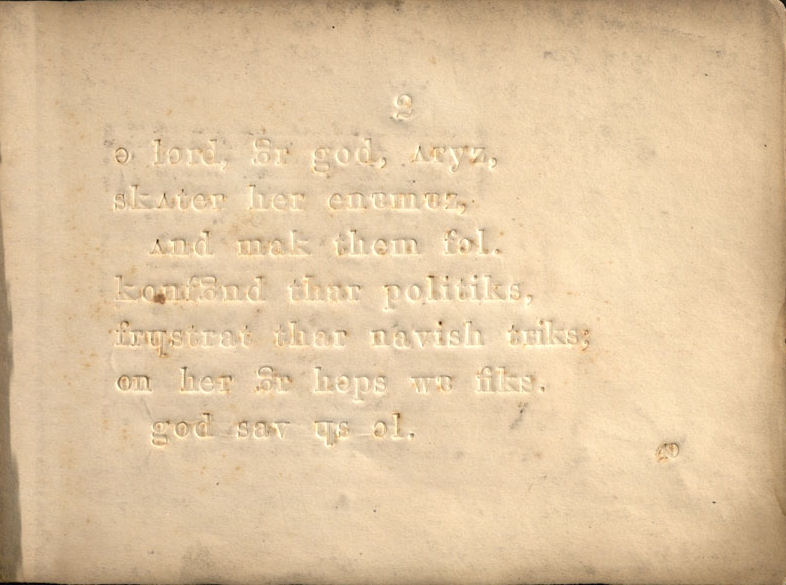 2
ɵ lɵrd, Ȣr god, ʌryz,
skʌter her enɯmɯz,
ʌnd mak them fɵl.
konfȢnd thar politiks,
frɥstrat thar navish triks;
on her Ȣr hɵps wɯ fiks.
god sav ɥs ɵl.